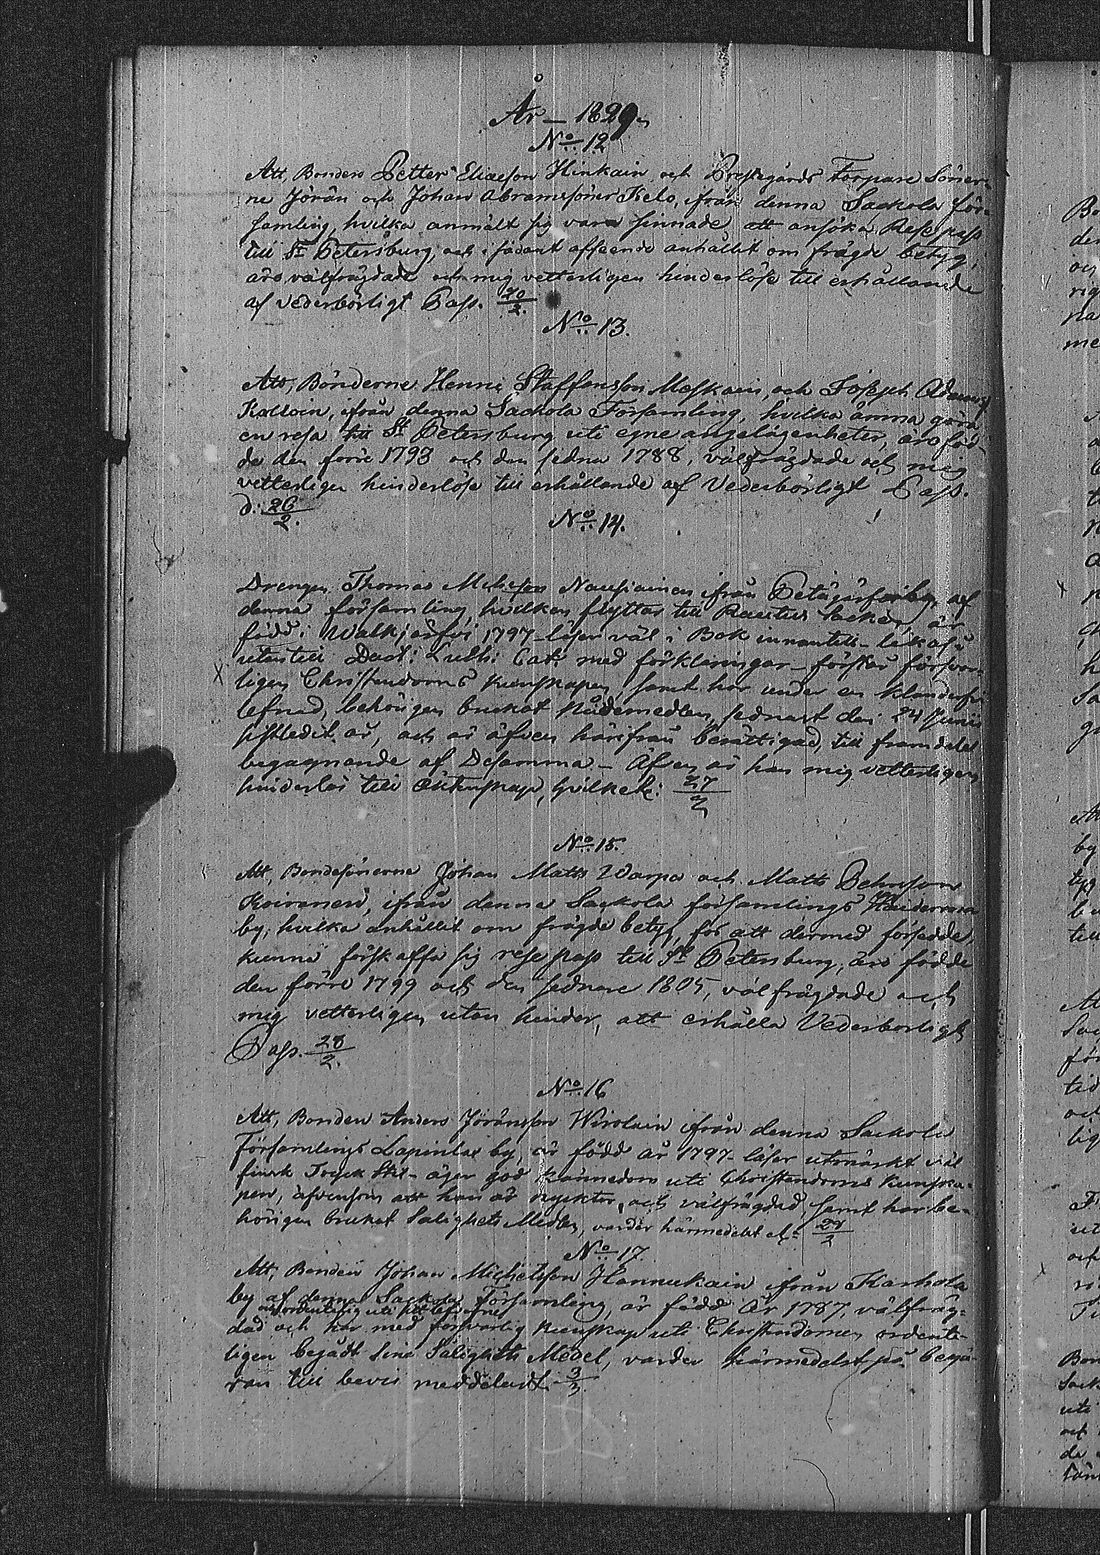 År – 1829.
No 12
Att, Bonden Petter Eliasson Hinkain och Prestegårds Torpare Söner-
ne Jöran och Johan Abramssöner Kelo, ifrån denna Sackola För-
samling, hvilka anmält sig vara sinnade, att ansöka Respass
till St Petersburg, och i sådant afseende anhållit om frägde betyg,
äro välfrägdade och mig vetterligen hinderlöse till erhållande
af vederbörligt Pass. 20/2.
No 13.
Att, Bönderne Henric Staffansson Meskain, och Joseph Adamsson
Kolloin, ifrån denna Sackola Församling, hvilka ämna göra
en resa till St Petersburg uti egne angelägenheter, äro föd-
de den förre 1793 och den sedna 1788, välfrägdade och mig
vetterligen hinderlöse till erhållande af Vederbörligt Pass.
d. 26/2.
No 14.
Drengen Thomas Michelss Nausiainen ifrån Petäjärfwi by af
denna församling, hvilken flyttar till Rautus Socken, är
född i Walkjärfvi 1797 – läser väl i Bok innantill –
utantill Doct: Luth: Cat: med förklaringar – förstår försvar-
ligen Christendoms kunskapen, samt har under en klanderfri
lefnad, behörigen brukat Nådemedlen, sednast den 24 Junii
sistledit år, och är äfven härifrån berättigad, till framdeles
begagnande af Desamma – Äfven är han mig vetterligen
hinderlös till Äktenskap, hvilket: 27/2
No 15.
Att, Bondesönerna Johan Matts Warpa och Matts Pehrsson
Koivonen, ifrån denna Sackola församlings Haiderma
by, hvilka anhållit om frägde betyg, för att dermed försedde,
kunna förskaffa sig respass till St Petersburg, äro födde
den förre 1799 och den sednere 1805, välfrägdade och
mig vetterligen utan hinder, att erhålla Vederbörligt
Pass. 28/2.
No 16
Att, Bonden Anders Jöransson Wirolain ifrån denna Sackola
Församlings Lapinlax by, är född år 1797 – läser utmärkt väl
finsk Tryck stil – äger god kännedom uti Christendoms kunska-
pen, äfvensom att han är nyckter, och välfrägdad samt har be-
hörigen brukat Salighets Medlen, varder härmedelst af. 28/2
No 17.
Att, Bonden Johan Michelsson Hannukain ifrån Karhola
by af denna Sackola Församling, är född år 1787, välfräg-
dad och har med försvarlig kunskap uti Christendomen, ordent-
ligen begådt sina Salighets Medel, varder härmedelst på begä-
ran till bevis meddeladt. 3/3